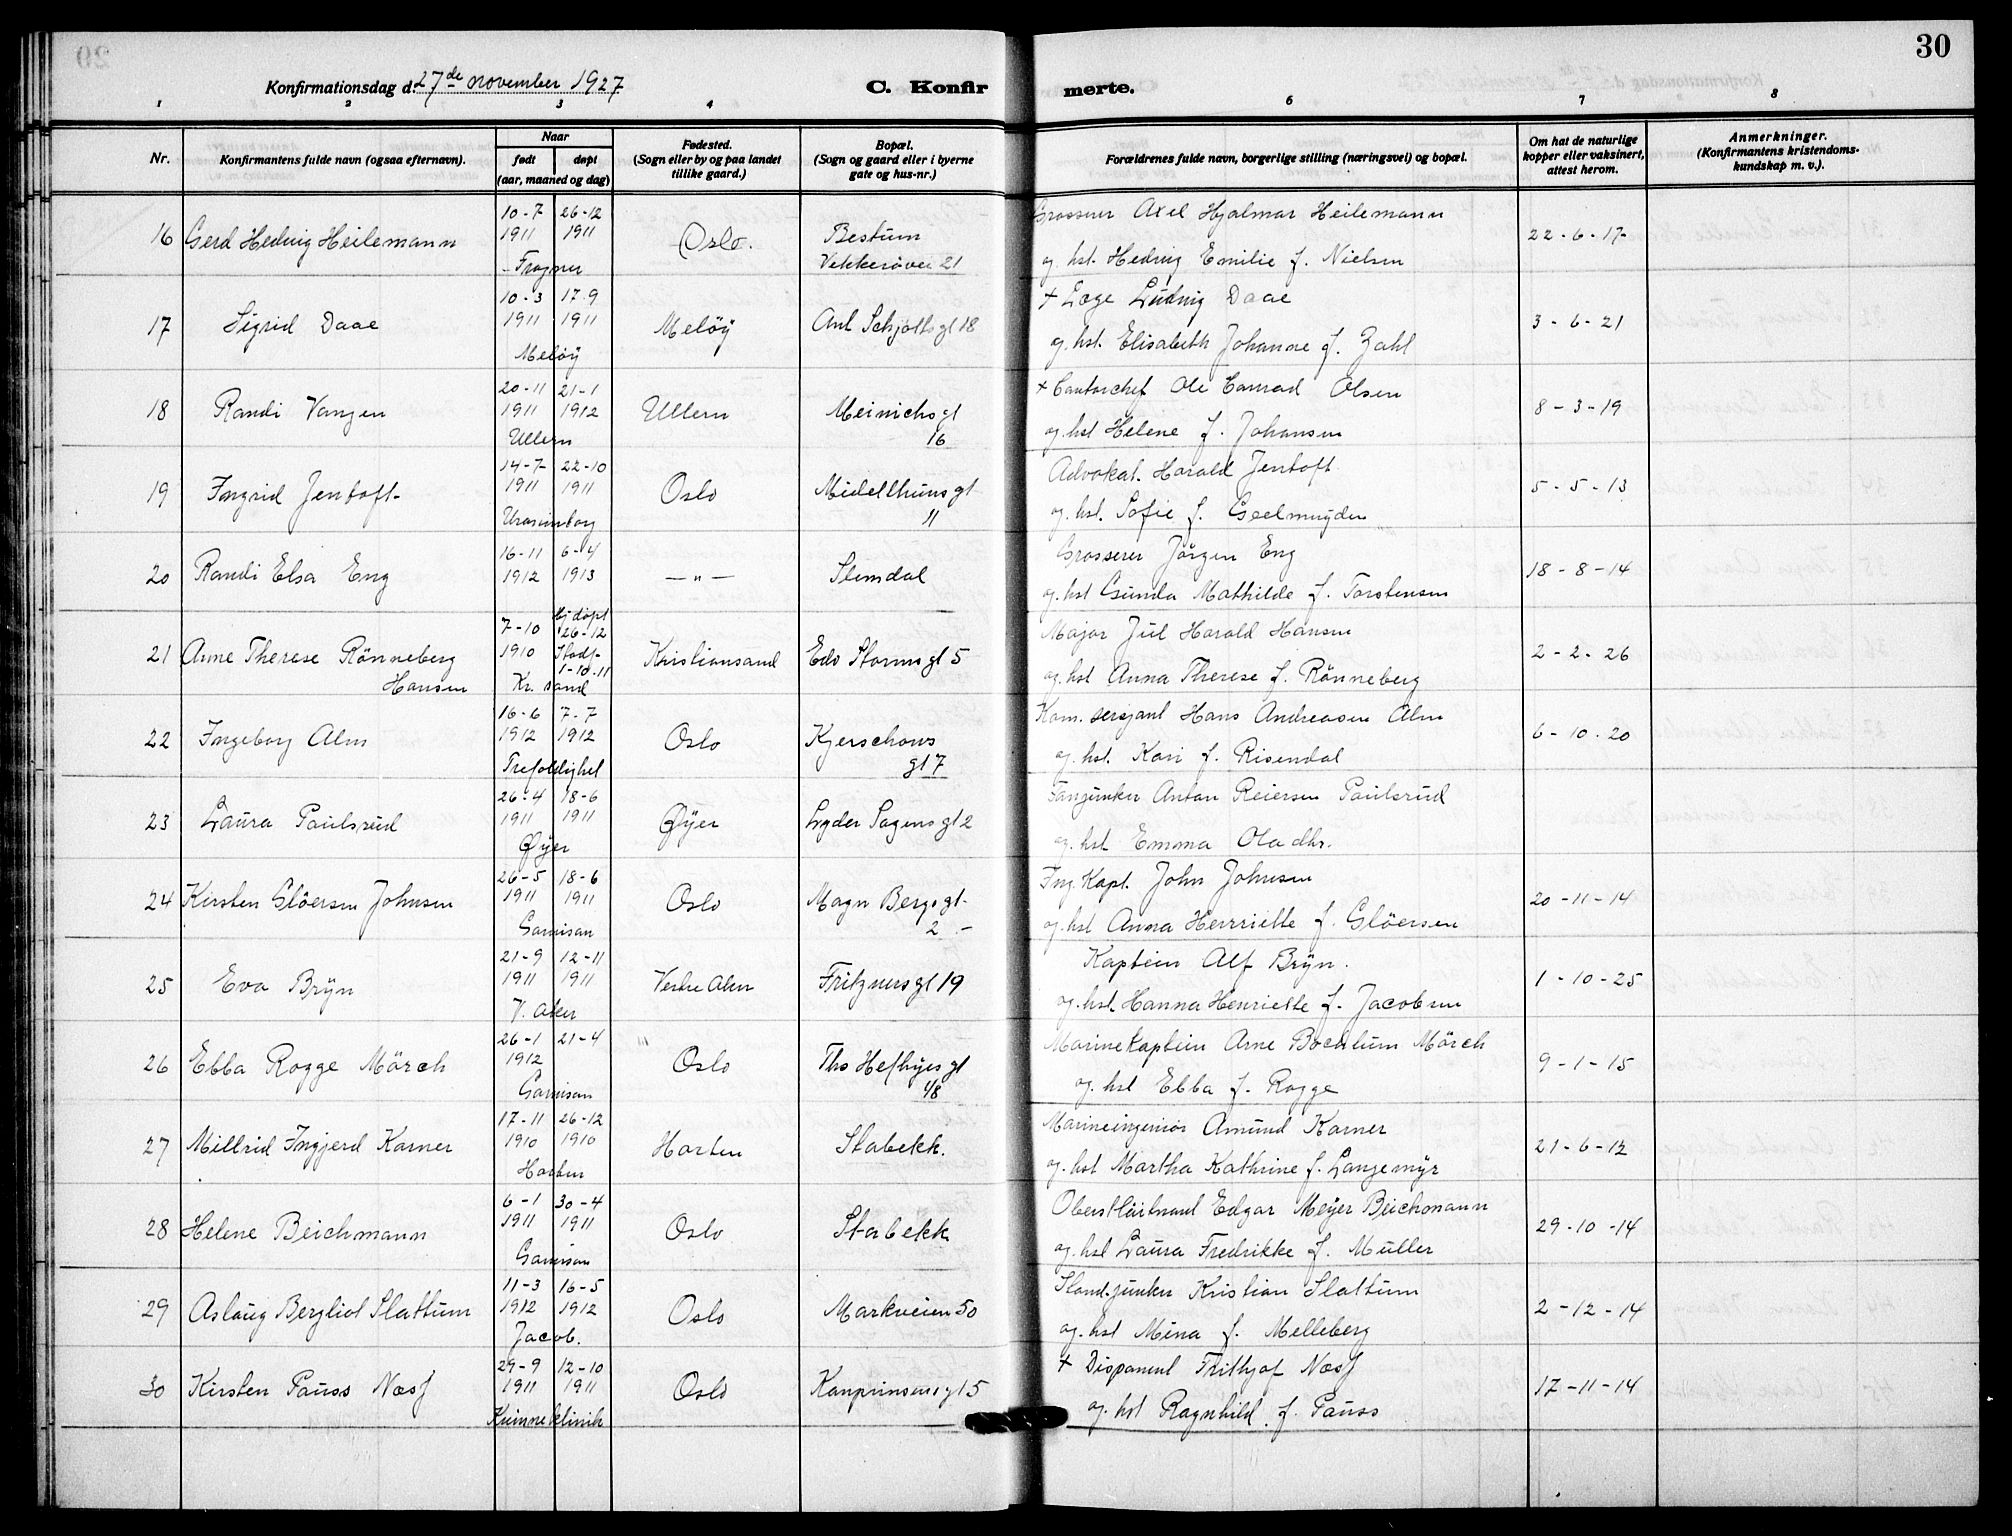 30
Konfirmationsdag d. 27de november 1927
C. Konfirmerte.
1 2 3 4 6 7 8
Nr.
Konfirmantens fulde navn (ogsaa efternavn).
Naar
født døpt
(aar, maaned og dag)
Fødested.
(Sogn eller by og paa landet
tillike gaard.)
Bopæl.
(Sogn og gaard eller i byerne
gate og hus-nr.)
Forældrenes fulde navn, borgerlige stilling (næringsvei) og bopæl.
Om hat de naturlige
kopper eller vaksinert,
attest herom.
Anmerkninger.
(Konfirmantens kristendoms-
kundskap m. v.).
16 Gerd Hedvig Heilemann
10-7 26-12
1911 1911
Frogner
Oslo.
Bestum
Vekkerøvei 21
Grosserer Axel Hjalmar Heilemann
og hst. Hedvig Emilie f. Nielsen
22-6-17
17 Sigrid Daae
10-3 17-9
1911 1911
Meløÿ
Meløÿ
Ant Schjøtts gt 18
+ Læge Ludvig Daae
og hst. Elisabeth Johanne f. Zahl
3-6-21
18 Randi Vangen
20-11 21-1
1911 1912
Ullern
Ullern
Meinichs gt
16
+ Contorchef Ole Conrad Olsen
og hst Helene f. Johansen
8-3-19
19 Ingrid Jentoft
14-7 22-10
1911 1911
Uranienborg
Oslo
Midelthuns gt
11
Advokat. Harald Jentoft
og hst. Sofie f. Geelmuyden
5-5-13
20 Randi Elsa Eng
16-11 6-4
1912 1913
—"—
Slemdal
Grosserer Jörgen Eng
og hst Gunda Mathilde f. Torstensen
18-8-14
21 Anne Therese Rönneberg
Hansen
7-10 Hj døpt
26-12
1910 Stadf.
1-10-11
Kr. sand
Kristiansand
Edv Storms gt 5
Major Jul Harald Hansen
og hst Anna Therese f. Rönneberg
2-2-26
22 Ingeborg Alm
16-6 7-7
1912 1912
Trefoldighet
Oslo
Kjerschows
gt 7
Kom. sersjant Hans Andreasen Alm
og hst. Kari f. Risendal
6-10-20
23 Laura Paulsrud
26-4 18-6
1911 1911
Øÿer
Øÿer
Lyder Sagens gt 2
Fanjunker Anton Reiersen Paulsrud
og hst Emma Oladtr.
24 Kirsten Glöersen Johnsen
26-5 18-6
1911 1911
Garnison
Oslo
Magn Bergs gt
2 -
Ing. Kapt. John Johnsen
og hst Anna Henriette f. Glöersen
20-11-14
25 Eva Brÿn
21-9 12-11
1911 1911
V. Aker
Vestre Aker
Fritzners gt 19
Kaptein Alf Brÿn.
og hst Hanna Henriette f. Jacobsen
1-10-25
26 Ebba Rogge Mörch
26-1 21-4
1912
Garnison
Oslo
Ths Heftyes gt
48
Marinekaptein Arne Mörch
og hst Ebba f. Rogge
9-1-15
27 Millrid Ingjerd Karner
17-11 26-12
1910 1910
Horten
Horten
Stabekk.
Marineingeniör Amund Karner
og hst Martha Kathrine f. Langemÿr
21-6-12
28 Helene Beichmann
6-1 30-4
1911 1911
Garnison
Oslo
Stabekk
Oberstlöitnant Edgar Meÿer Beichmann
og hst Laura Fredrikke f. Muller
29-10-14
29 Aslaug Bergliot Slattum
11-3 16-5
1912 1912
Jacob.
Oslo
Markveien 50
Standjunker Kristian Slattum
og hst Mina f. Melleberg
2-12-14
30 Kirsten Pauss Næsf
29-9 12-10
1911 1911
Kvinneklinik
Oslo
Kronprinsens gt 5
+ Disponent Frithjof Næsf
og hst Ragnhild f. Pauss
17-11-14